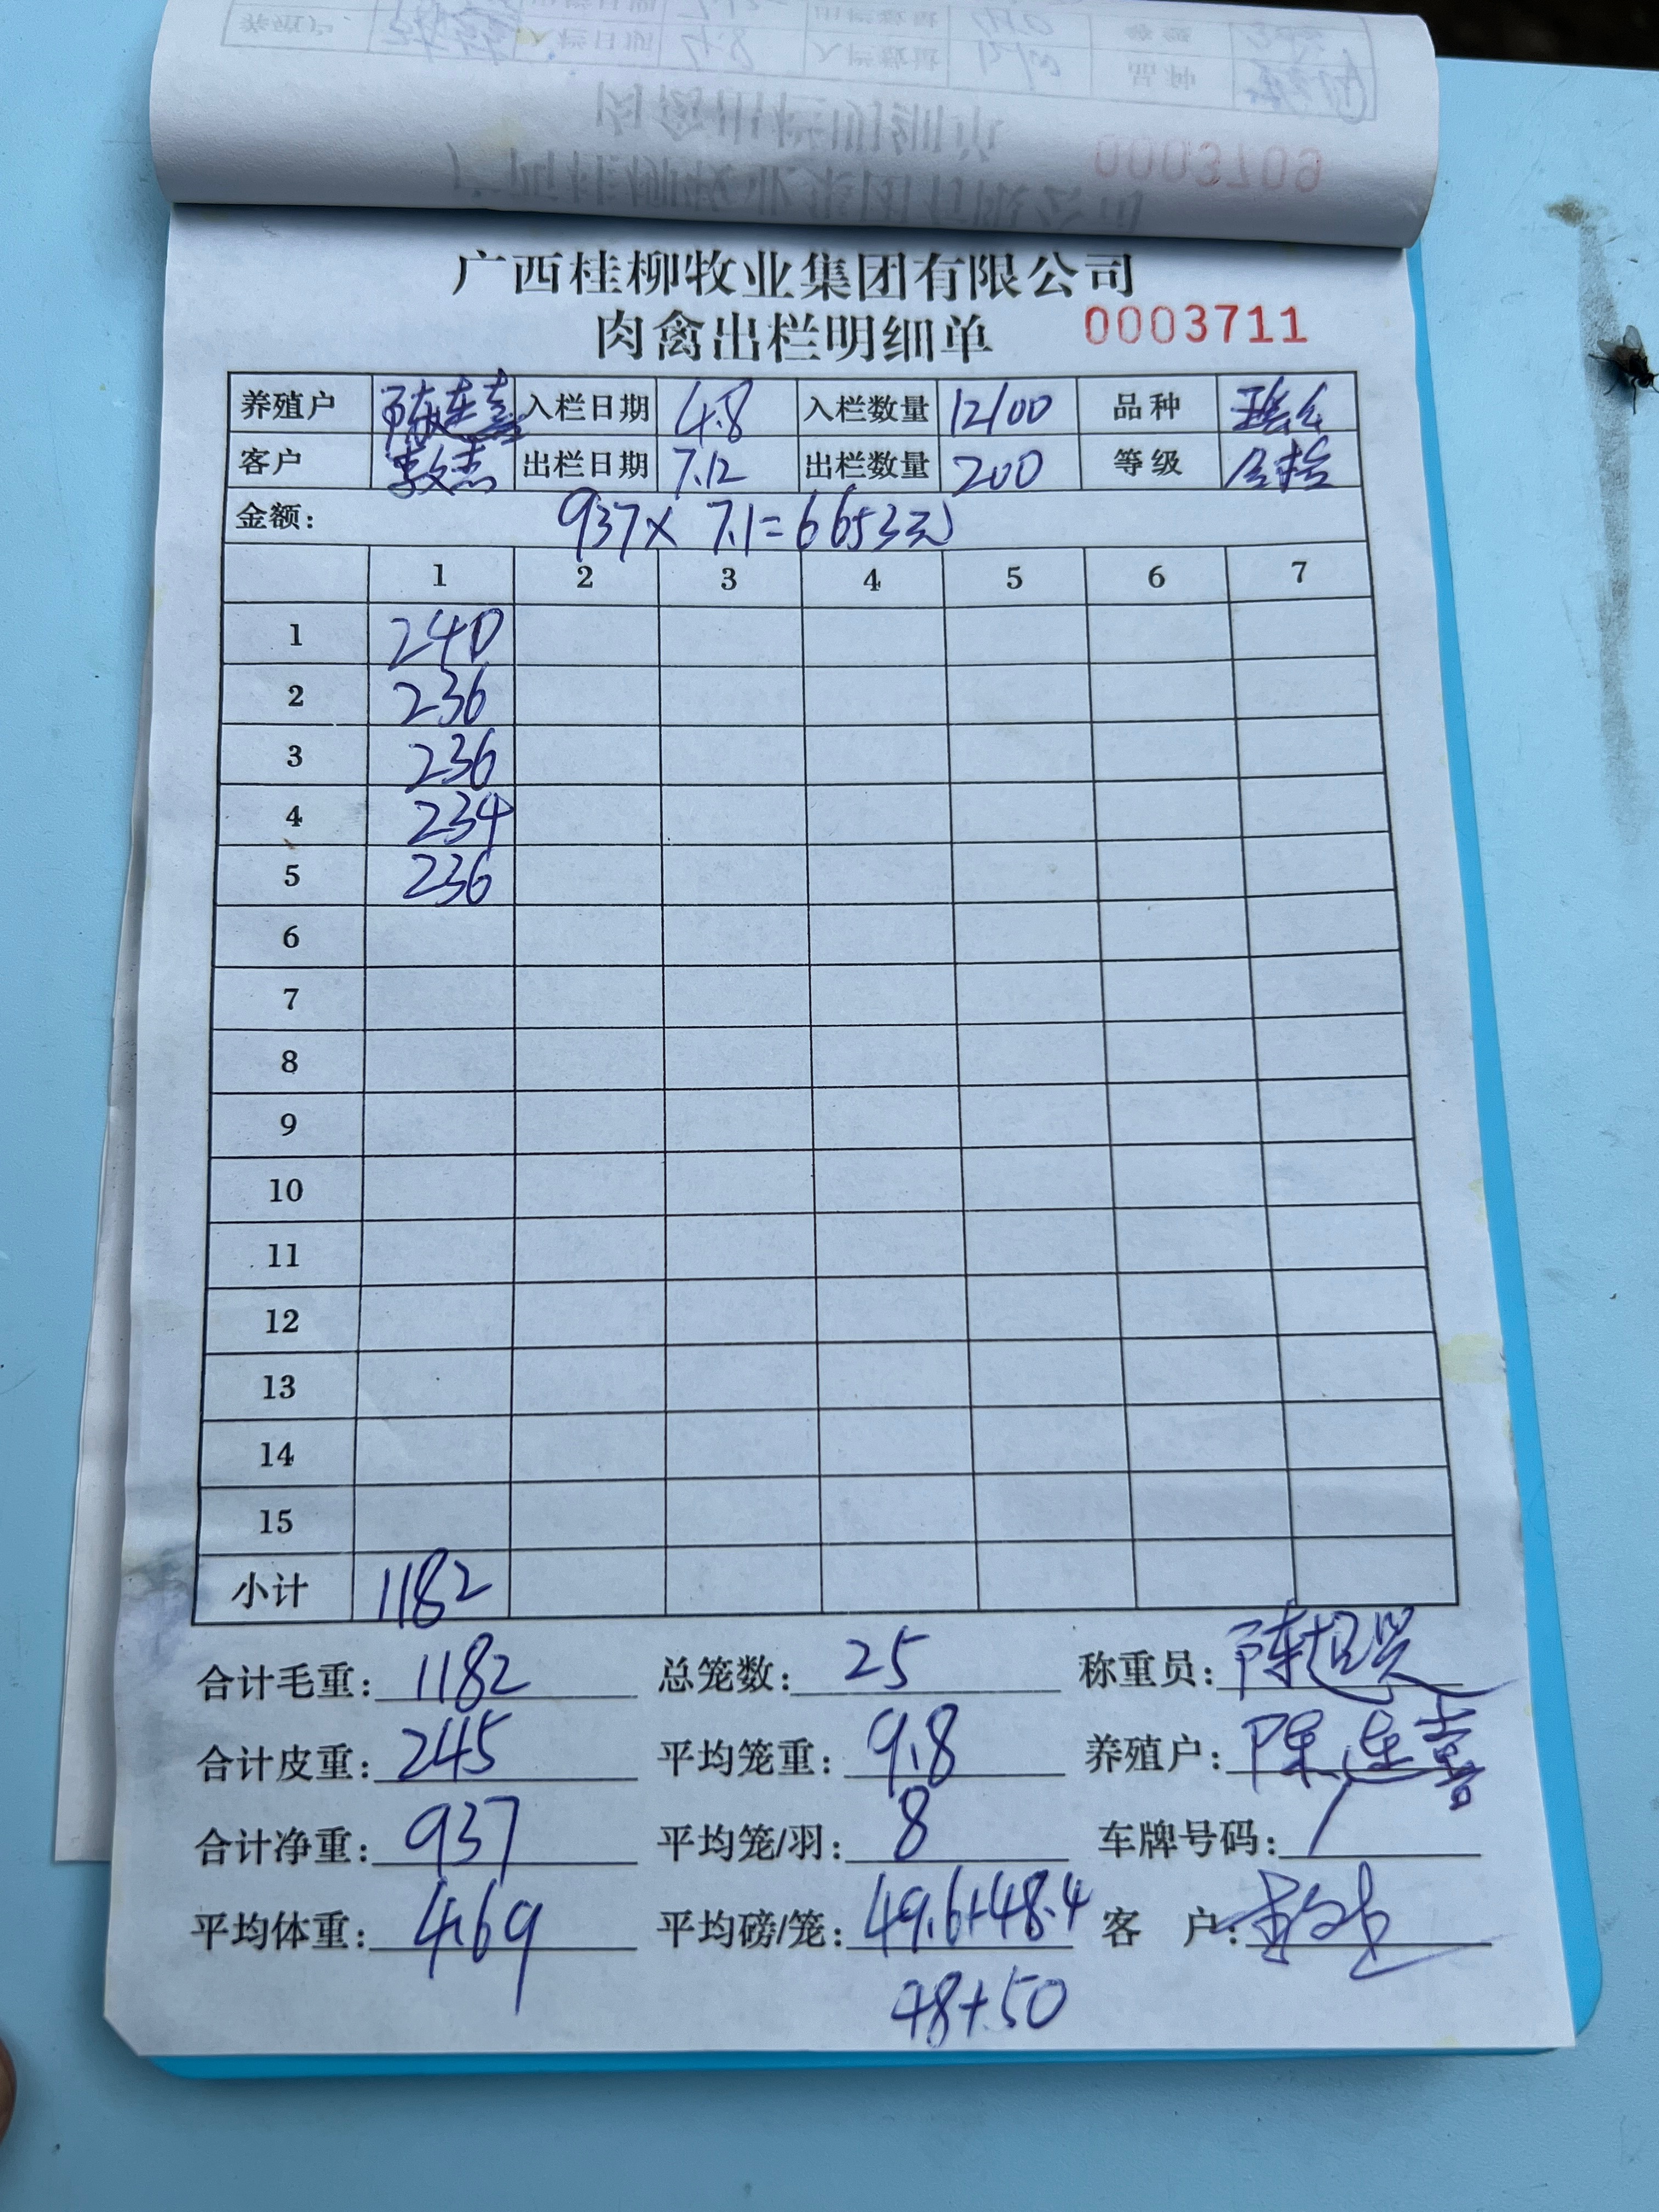 广西桂柳牧业集团有限公司
肉禽出栏明细单 0003711
养殖户 陈连喜 入栏日期 4.8 入栏数量 12100 品种
客户 出栏日期 7.12 出栏数量 200 等级
金额: 937×7.1=6653元
1 2 3 4 5 6 7
1 240
2 236
3 236
4 234
5 236
6
7
8
9
10
11
12
13
14
15
小计 1182
合计毛重: 1182 总笼数: 25 称重员: 陈
合计皮重: 245 平均笼重: 9.8 养殖户: 陈连喜
合计净重: 937 平均笼/羽: 8 车牌号码: /
平均体重: 4.69 平均磅/笼: 49.6+48.4 客 户:
48+50